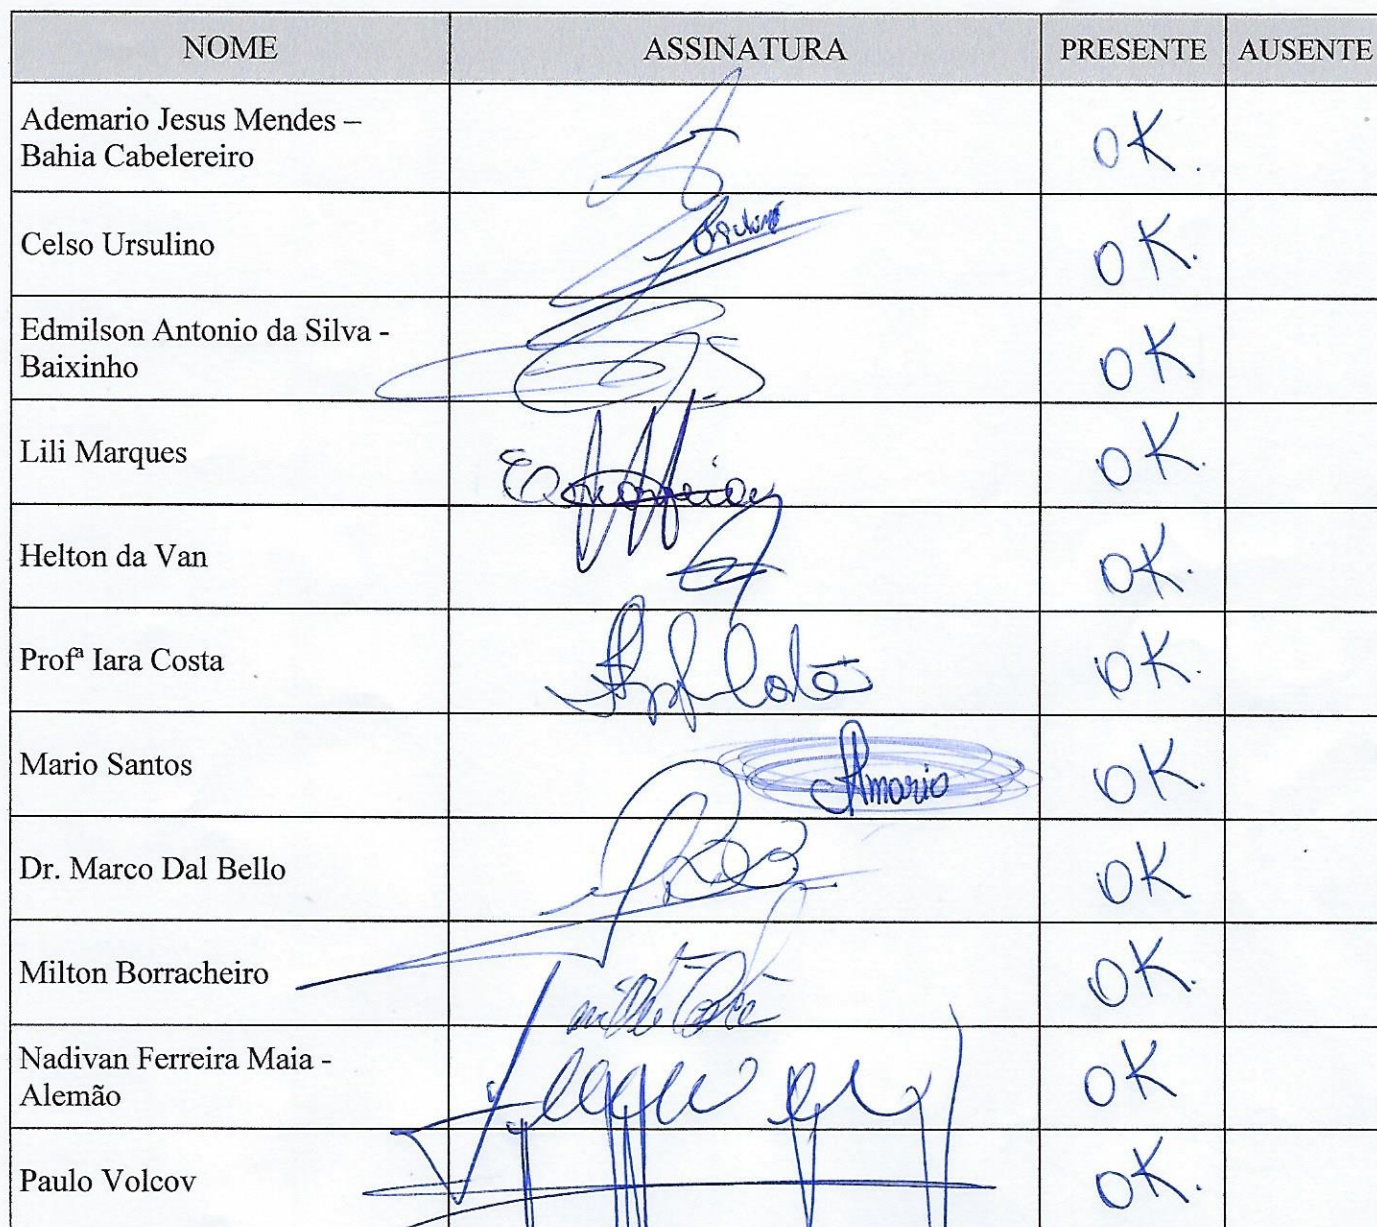 NOME ASSINATURA PRESENTE AUSENTE
Ademario Jesus Mendes –
Bahia Cabelereiro
OK.
Celso Ursulino
OK.
Edmilson Antonio da Silva -
Baixinho
OK
Lili Marques
OK.
Helton da Van
OK.
Profª Iara Costa
OK.
Mario Santos Amario OK.
Dr. Marco Dal Bello
OK
Milton Borracheiro
OK.
Nadivan Ferreira Maia -
Alemão
OK
Paulo Volcov
OK.